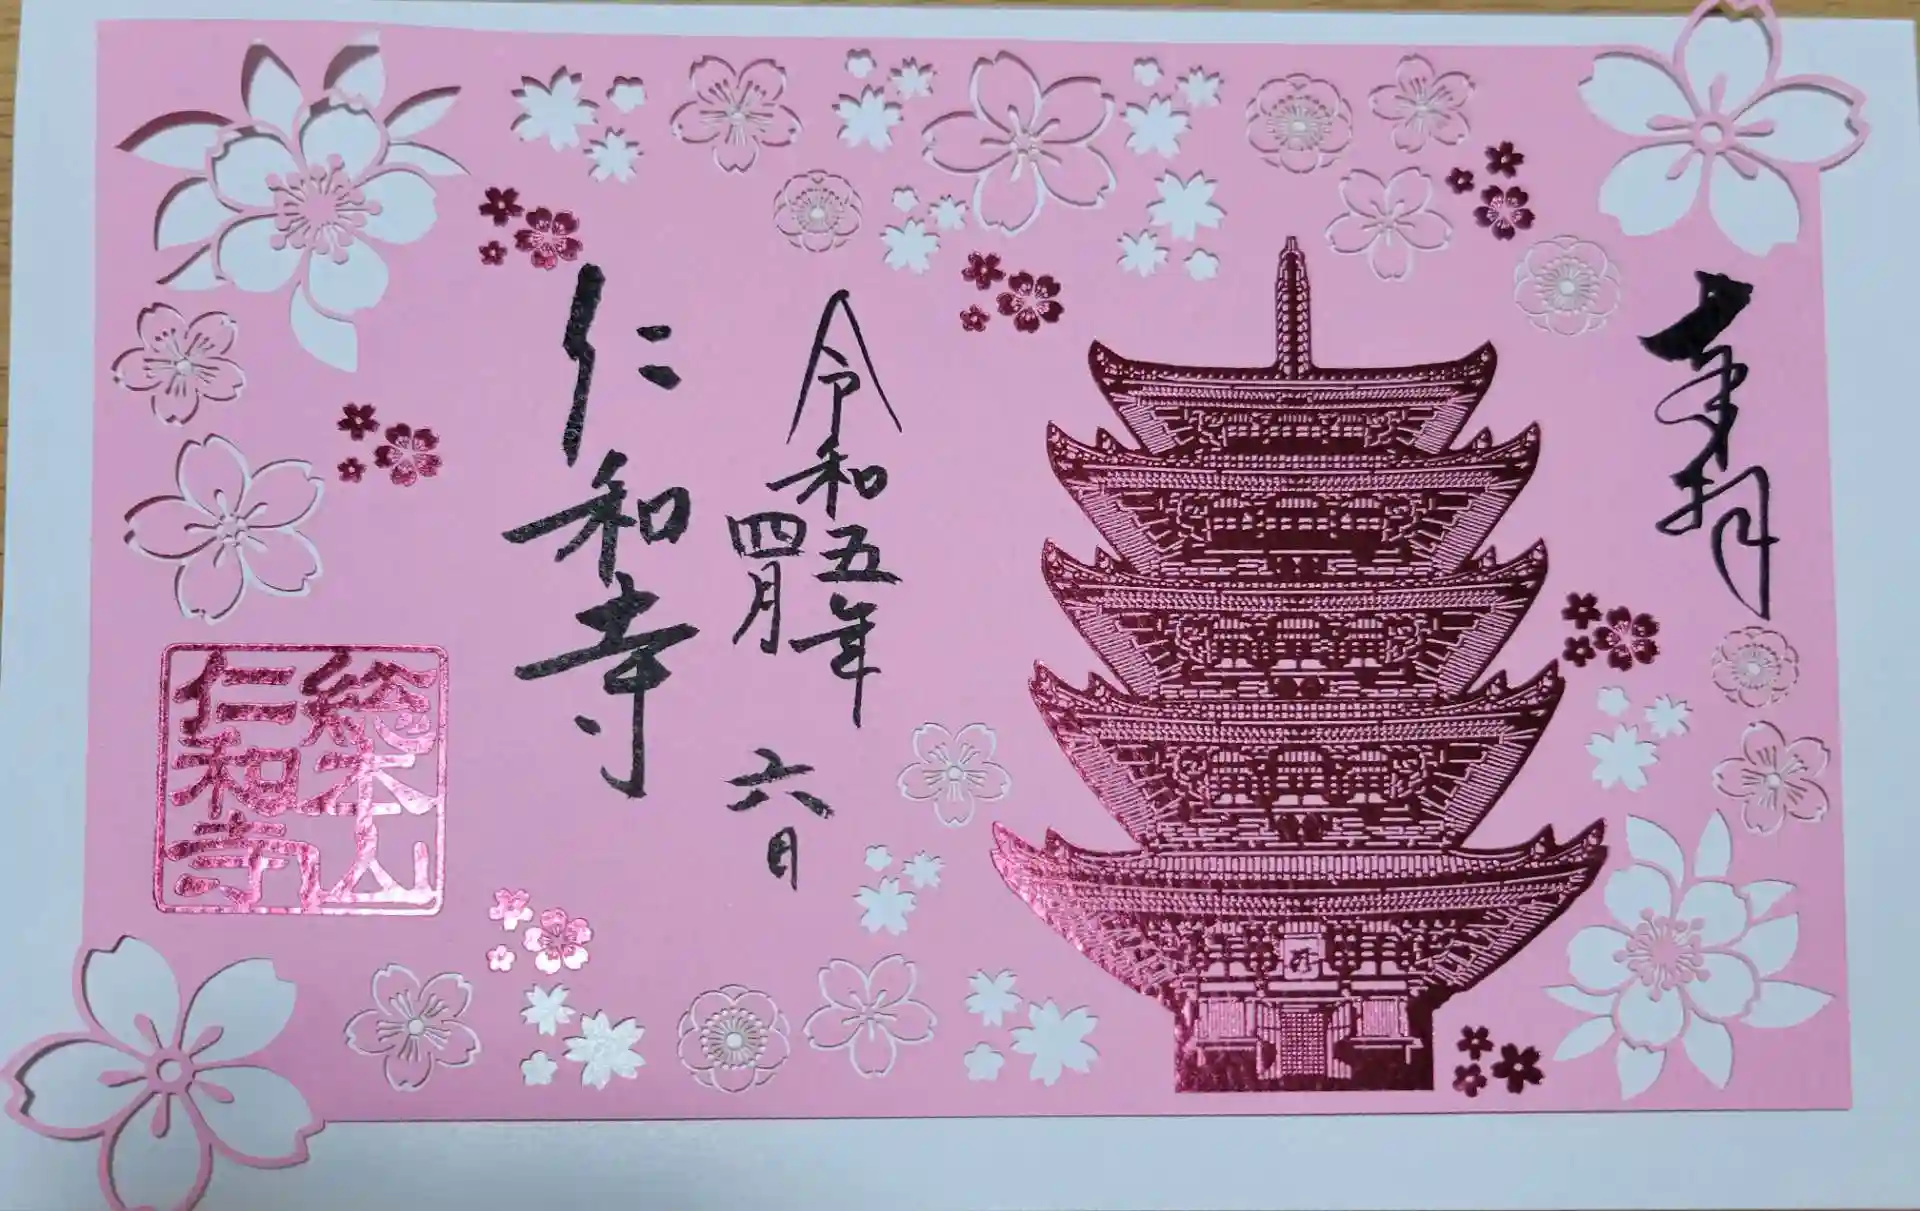 奉拝
令和五年
四月 六日
仁和寺
総本山
仁和寺